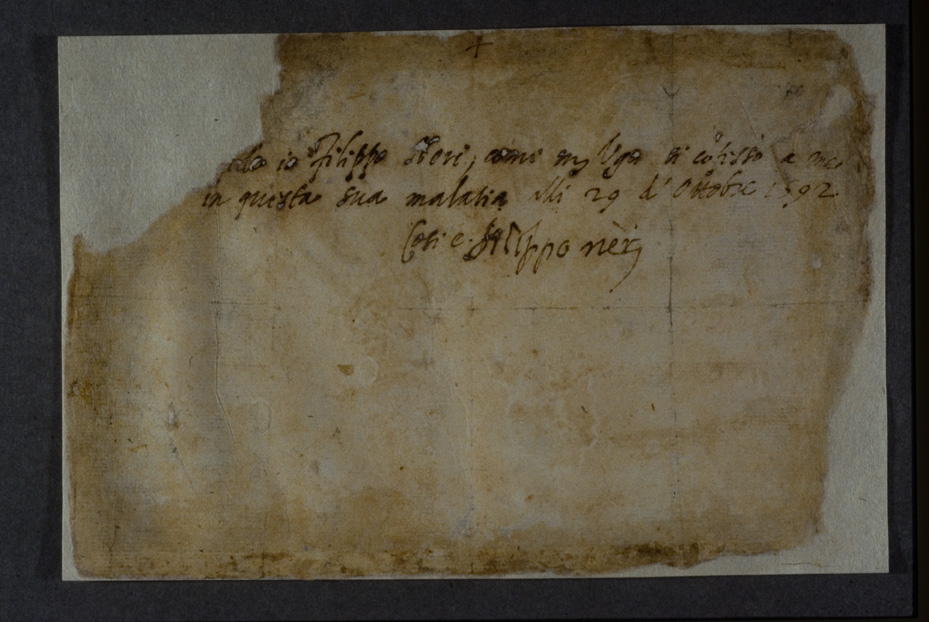 io Filippo Neri, come m Ugo si cōfessò a me
in questa sua malatia alli 29 d' Ottobre 1592
Cosi e. filippo neri